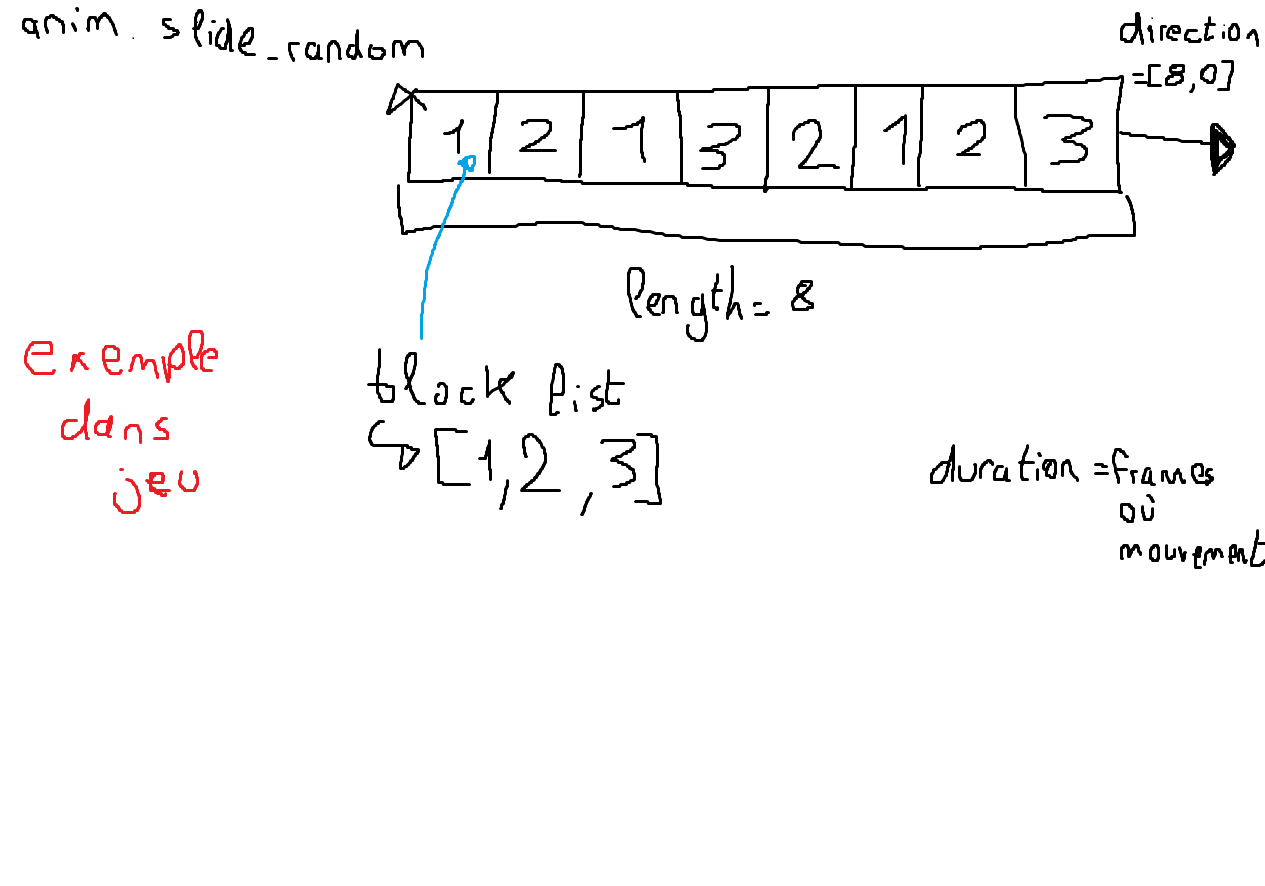 anim. slide_random
direction
=[8,0]
1 2 1 3 2 1 2 3
length= 8
exemple
dans
jeu
block list
[1,2,3]
duration =frames
où
mouvement